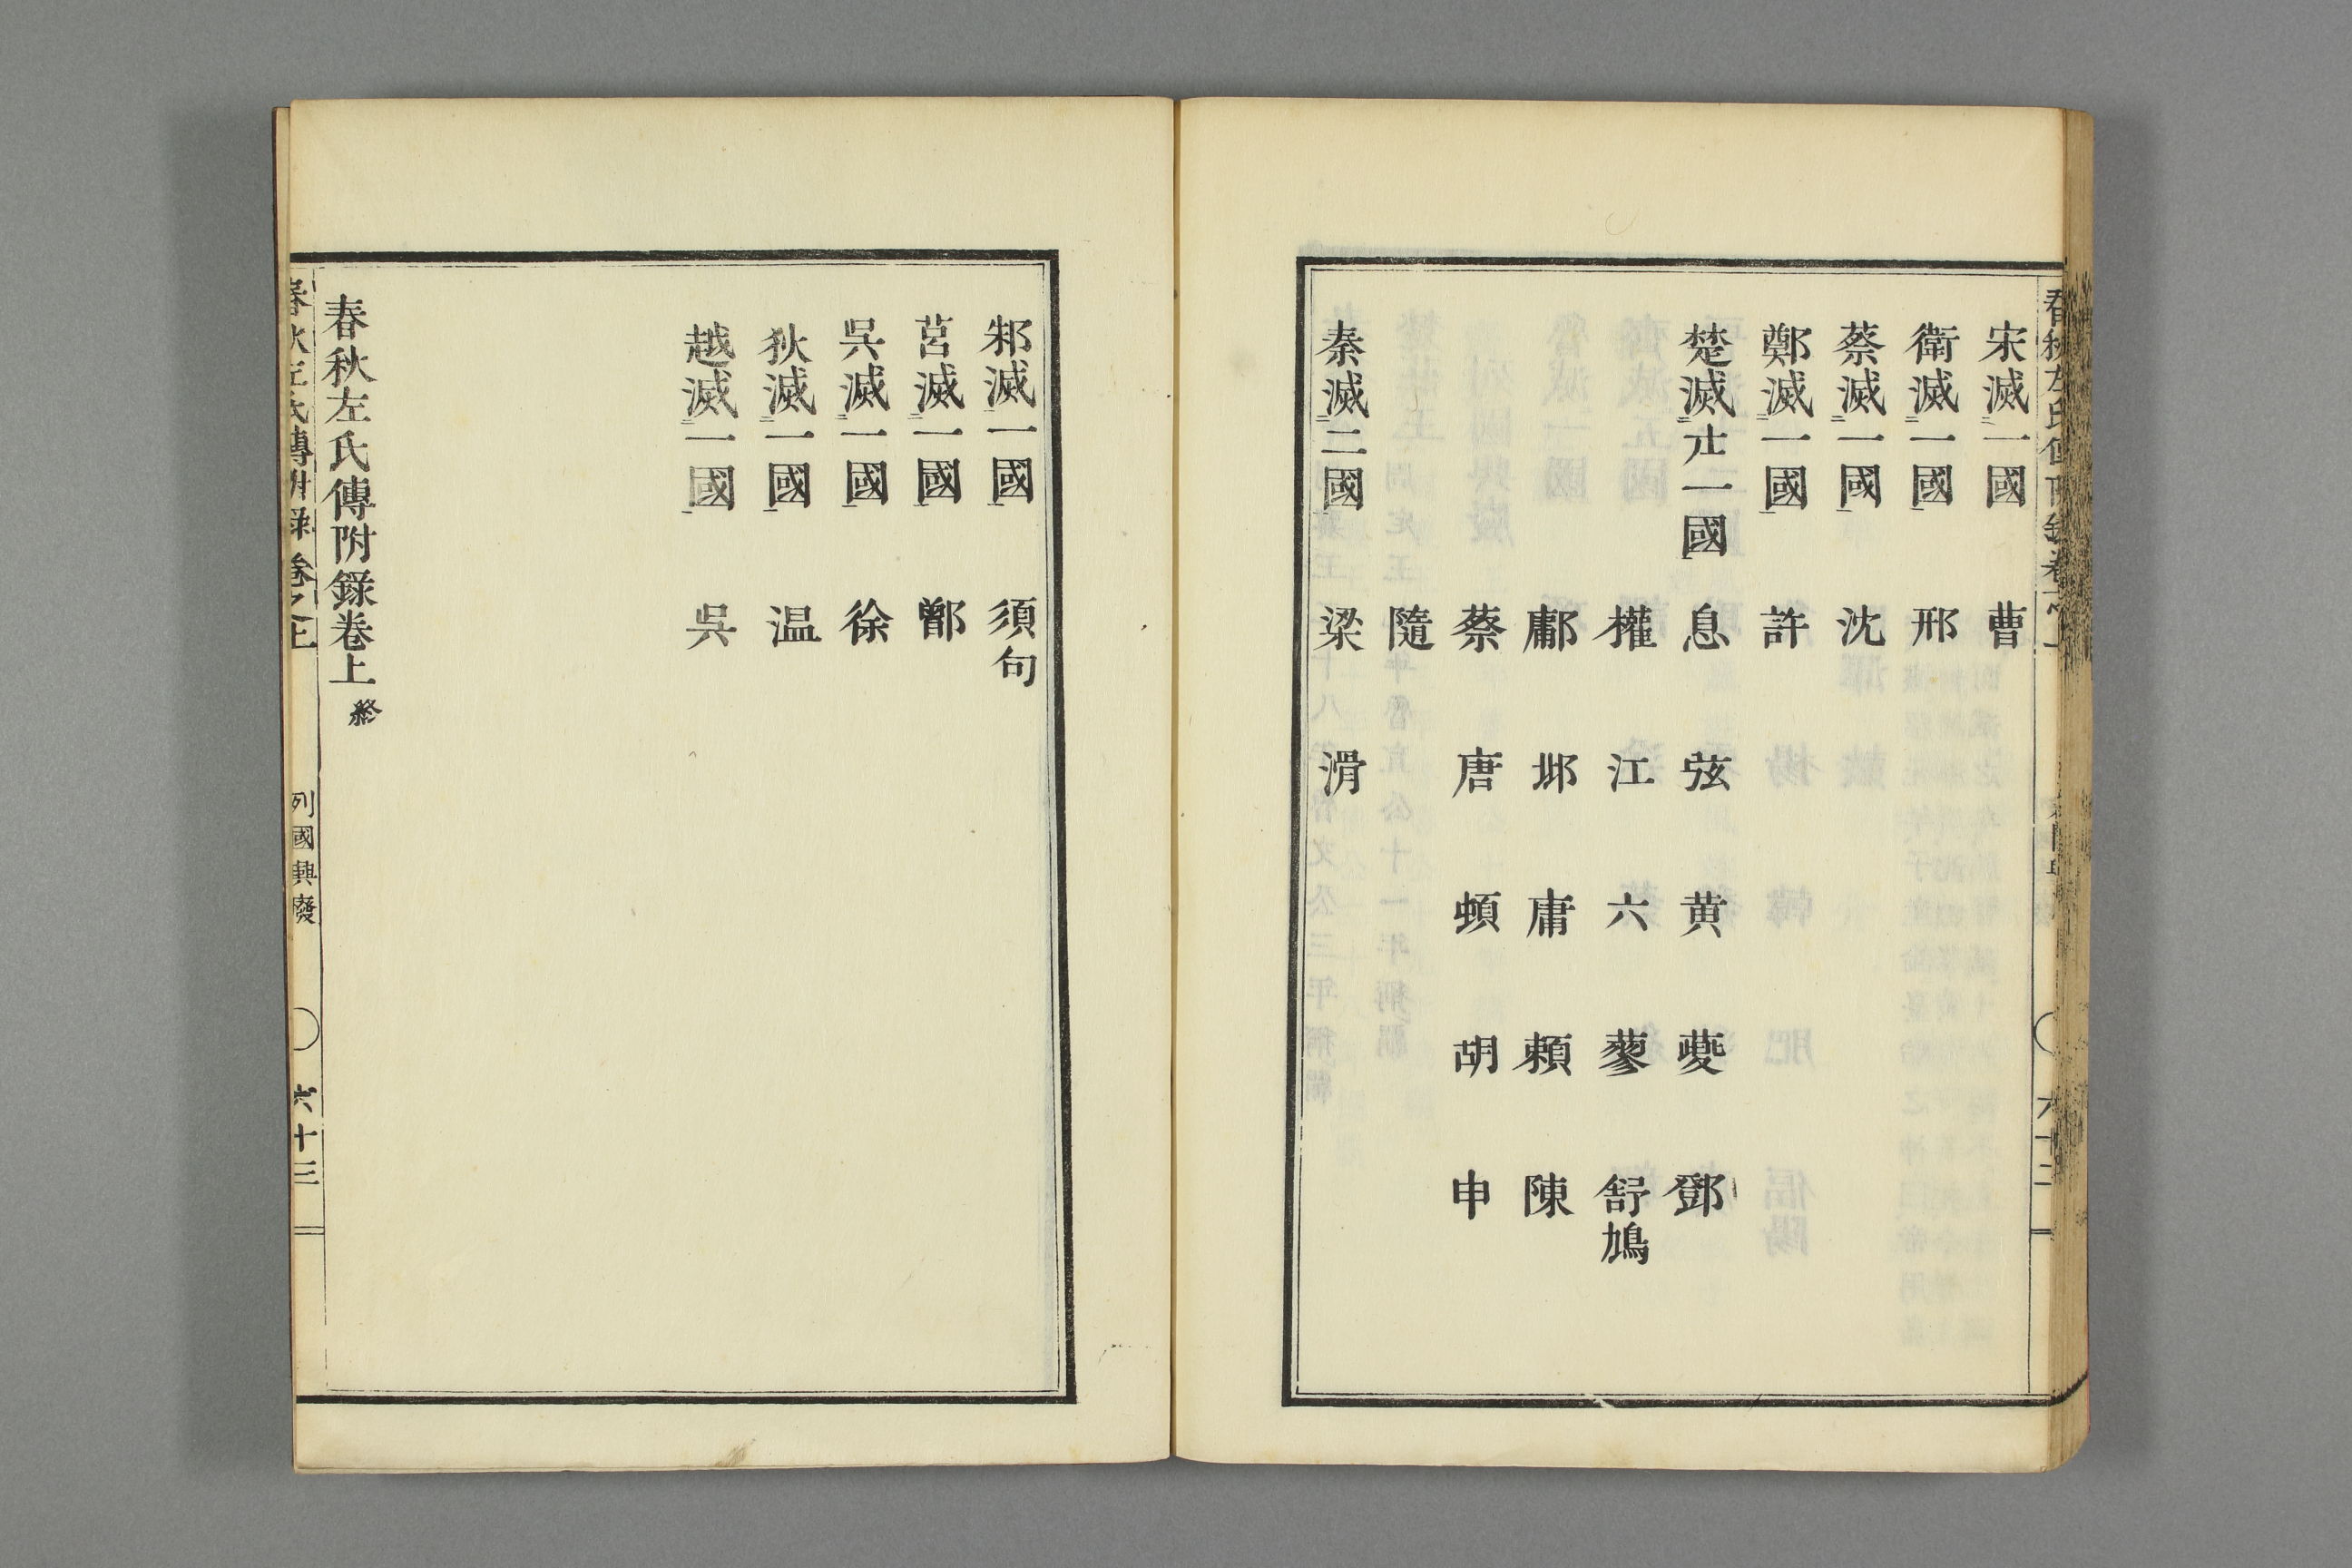 宋滅一國　曹
衛滅一國　邢
蔡滅一國　沈
鄭滅一國　許
楚滅廿一國　息　弦　黄　夔　鄧
權　江　六　蓼　舒鳩
鄘　邶　庸　頼　陳
蔡　唐　頓　胡　申
隨
秦滅二國　梁　滑
邾滅一國　須句
莒滅一國　鄫
吳滅一國　徐
狄滅一國　温
越滅一國　吳
春秋左氏傳附錄卷上 終
春秋左氏傳附錄卷之上　列國興廢　六十三